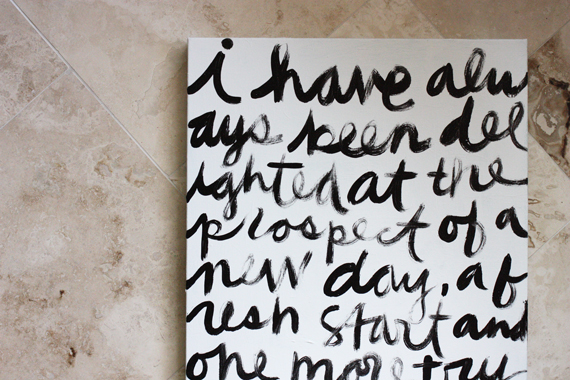 i have alw
ays been del
ighted at the
prospect of a
new day, a f
resh start and
one more try